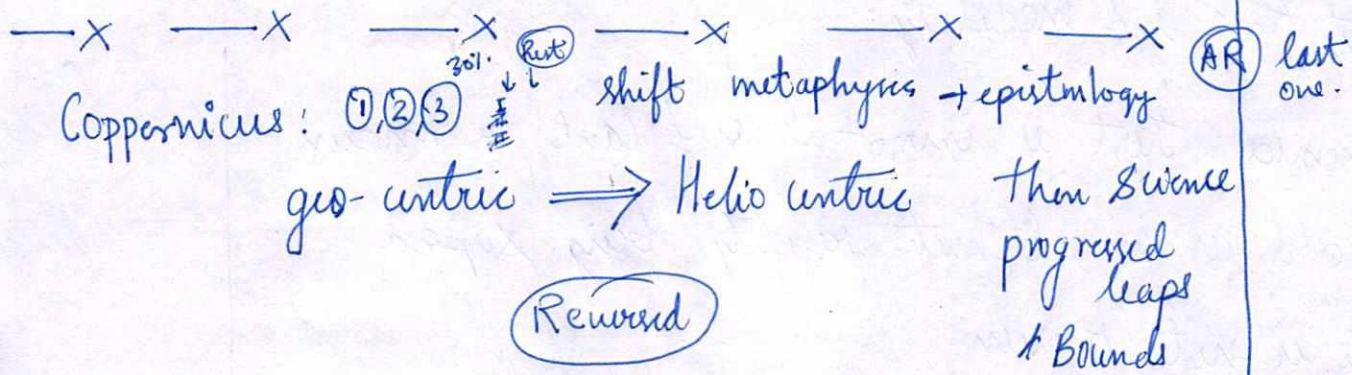 30%. Rest
Coppernicus: ①,②,③ shift metaphysics → epistmlogy AR last one.
geo-centric ⟹ Helio centric then Science
progressed
leaps
& Bounds
Reversed